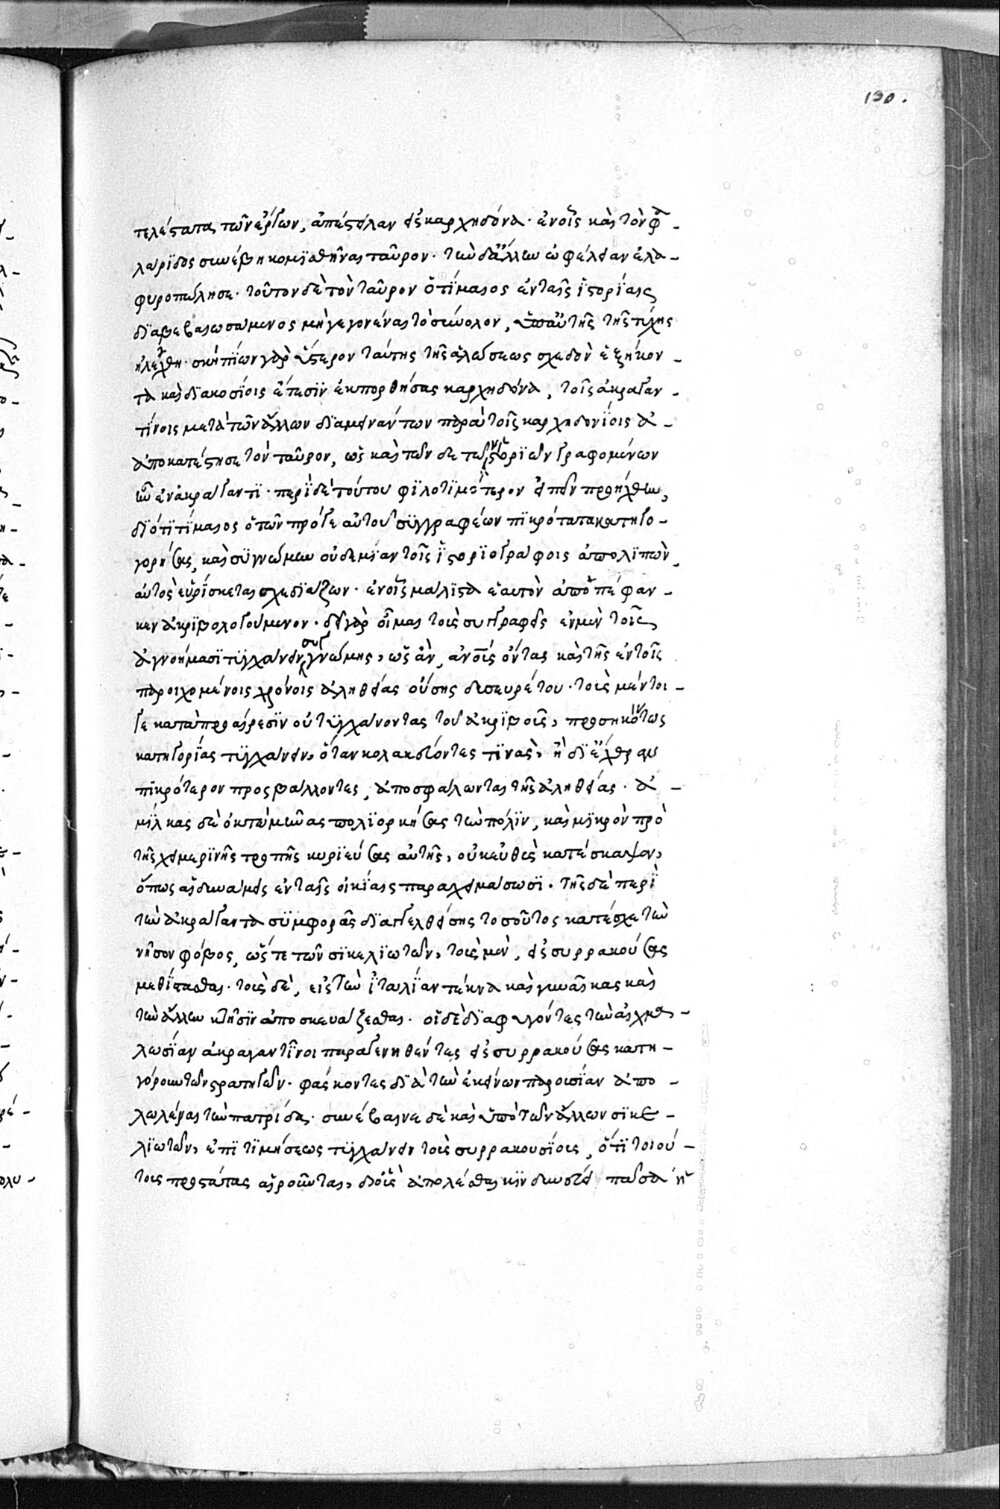 τελέστατα τῶν ἔργων, ἀπέστειλαν εἰς καρχηδόνα· ἐν οἷς καὶ τὸν φα-
λαρίδος συνέβη κομισθῆναι ταῦρον· τὴν δ' ἄλλην ὠφέλειαν ἐλα-
φυροπώλησε· τοῦτον δὲ τὸν ταῦρον ὁ τίμαιος ἐν ταῖς ἱστορίαις
διαβεβαιωσάμενος μὴ γεγονέναι τὸ σύνολον, ὑπ' αὐτῆς τῆς τύχης
ἠλέγχθη· σκηπίων γὰρ ὕστερον ταύτης τῆς ἁλώσεως σχεδὸν ἑξήκον-
τα καὶ διακοσίοις ἔτεσϊν ἐκπορθήσας καρχηδόνα, τοῖς ἀκραγαν-
τίνοις μετὰ τῶν ἄλλων διαμεινάντων παρὰ τοῖς καρχηδονίοις ἀ-
ἀποκατέστησε τὸν ταῦρον, ὡς καὶ τῶν δε τῶν ἱστοριῶν γραφομένων
ἦν ἐν ἀκράγαντϊ· περὶ δὲ τούτου φϊλοτϊμότερον εἰπεῖν προήχθην,
διότι τίμαιος ὁ τῶν πρό γε αὐτοῦ συγγραφέων πϊκρότατα κατηγο-
γορήσας, καὶ συγνώμην οὐδεμίαν τοῖς ἱστοριογράφοις ἀπολϊπὼν,
αὐτὸς εὑρίσκεται σχεδιάζων· ἐν οἷς μάλϊστα ἑαυτὸν ἀποπέφαν-
κεν ἀκριβολογούμενον· δεῖ γὰρ οἶμαι τοὺς συγγραφεῖς ἐν μὲν τοῖς
ἀγνοήμασϊ τυγχάνειν συγγνώμης, ὡς ἂν, ἀνους ὄντας καὶ τῆς ἐν τοῖς
παροιχομένοις χρόνοις ἀληθείας οὔσης δυσευρέτου· τοὺς μέντοι-
γε κατὰ προαίρεσϊν οὐ τυγχάνοντας τοῦ ἀκριβοῦς, προσηκόντως
κατηγορίας τυγχάνειν, ὅταν κολακεύοντες τϊνὰς, ἢ δι' ἔχθραν
πϊκρότερον προσβάλλοντες, ἀποσφάλωνται τῆς ἀληθείας· ἀ-
μϊλκας δὲ ὀκτὼ μῆνας πολϊορκήσας τὴν πόλϊν, καὶ μϊκρὸν πρὸ
τῆς χειμερϊνῆς τροπῆς κυρϊεύσας αὐτῆς, οὐκ εὐθὺς κατέσκαψεν,
ὅπως αἱ δυνάμεις ἐν ταῖς οἰκίαις παραχειμάσωσϊ· τῆς δὲ περὶ
τὴν ἀκράγαντα συμφορᾶς διαγγελθείσης τοσοῦτος κατέσχε τὴν
νῆσον φόβος, ὥστε τῶν σϊκελϊωτῶν, τοὺς μὲν, εἰς συρρακούσας
μεθίστασθαι· τοὺς δὲ, εἰς τὴν ἰταλίαν τέκνα καὶ γυναῖκας καὶ
τὴν ἄλλην κτῆσϊν ἀποσκευάζεσθαι· οἱ δὲ διαφυγόντες τὴν αἰχμα-
λωσίαν ἀκραγαντῖνοι παραγενηθέντες εἰς συρρακούσας κατη-
γόρουν τῶν στρατηγῶν· φάσκοντες διὰ τὴν ἐκείνων προδοσίαν ἀπο-
λωλέναι τὴν πατρίδα· συνέβαινε δὲ καὶ ὑπὸ τῶν ἄλλων σϊκε-
λϊωτῶν, ἐπϊτϊμήσεως τυγχάνειν τοὺς συρρακουσίους, ὅτϊ τοιού-
τους προστάτας αἱροῦνται, δι' οὓς ἀπολέσθαι κϊνδυνεύει πᾶσα ἡ